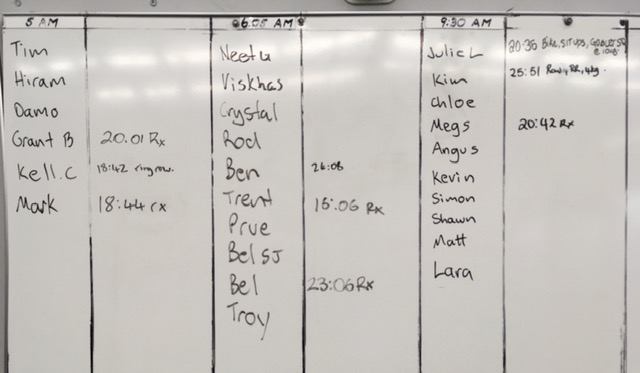 5 AM
Tim
Hiram
Damo
Grant B 20.01 Rx
Kell.C 18:42 ring row.
Mark 18:44 rx
06.05 AM
Neetu
Viskhas
Crystal
Rod
Ben 26:08
Trent 15:06 Rx
Prue
Bel SJ
Bel 23:06 Rx
Troy
9:30 AM
Julie L 30:36 Bike, SIT UPS, GOBLET SQ
Kim 25:51 Row, RR,
Chloe
Megs 20:42 Rx
Angus
Kevin
Simon
Shawn
Matt
Lara